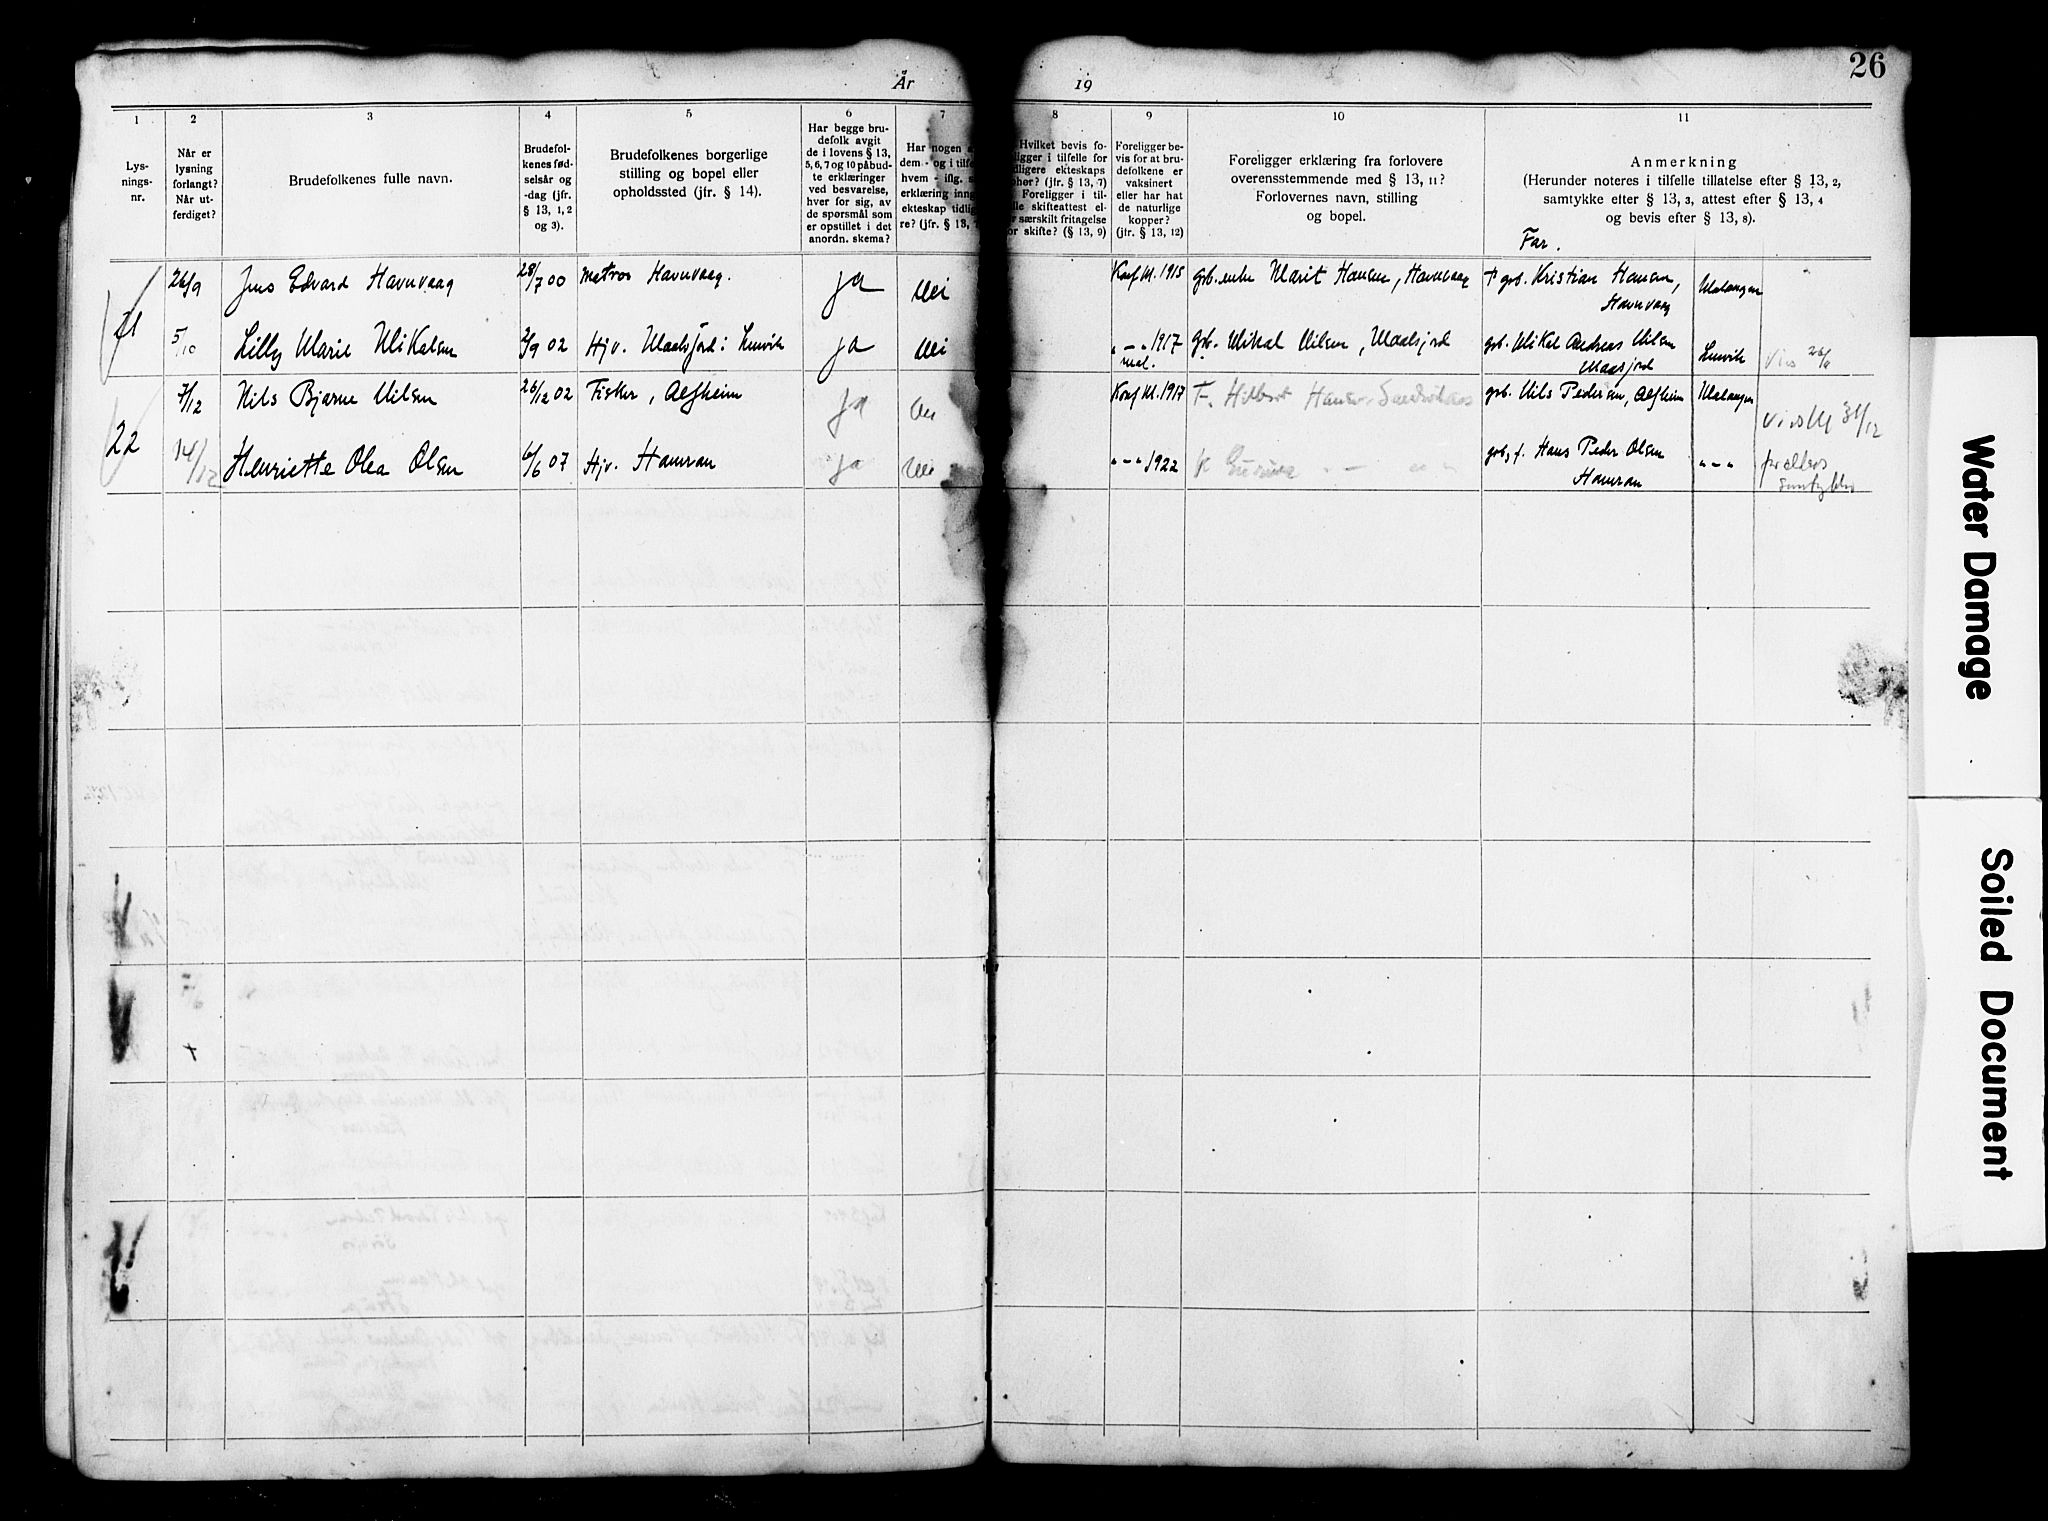 År 19
26
1 2 3 4 5 6 7 8 9 10 11
Lys-
nings-
nr.
Når er
lysning
forlangt?
Når ut-
ferdiget?
Brudefolkenes fulle navn.
Brudefol-
kenes fød-
selsår og
-dag (jfr.
§ 13, 1, 2
og 3).
Brudefolkenes borgerlige
stilling og bopel eller
opholdssted (jfr. § 14).
Har begge bru-
defolk avgit
de i lovens § 13,
5, 6, 7 og 10 påbud-
te erklæringer
ved besvarelse,
hver for sig, av
de spørsmål som
er opstillet i det
anordn. skema?
Har nogen
dem - og i tilfe
hvem - iflg.
erklæring inng
ekteskap tidlig
re? (jfr. § 13,
Hvilket bevis fo-
ligger i tilfelle for
dligere ekteskaps
phør? (jfr. § 13, 7)
Foreligger i til-
lle skifteattest el-
r særskilt fritagelse
or skifte? (§ 13, 9)
Foreligger be-
vis for at bru-
defolkene er
vaksinert
eller har hat
de naturlige
kopper?
(jfr. § 13, 12)
Foreligger erklæring fra forlovere
overensstemmende med § 13, 11?
Forlovernes navn, stilling
og bopel.
Anmerkning
(Herunder noteres i tilfelle tillatelse efter § 13, 2,
samtykke efter § 13, 3, attest efter § 13, 4
og bevis efter § 13, 8).
Far.
21 26/9 Jens Edvard Havnvaag 28/7 00 Matros Havnvaag. ja Nei Konf Kl. 1915 grb. enke Marit Hansen, Havnvaag † grb. Kristian Hansen, Malangen
Havnvaag
5/10 Lilly Marie Mikalsen 2/9 02 Hjv. Maalsjord i Lenvik ja Nei " - " 1917 grb. Mikal Nilsen, Maalsjord grb. Mikal Andreas Nilsen Lenvik
Maalsjord
22 7/12 Nils Bjarne Nilsen 26/12 02 Fisker, Alfheim ja Nei Konf Kl. 1917 F. Hilbert Hansen grb. Nils Pedersen, Alfheim Malangen 31/12
14/12 Henriette Olea Olsen 6/6 07 Hjv. Hamran ja Nei " - " 1922 grb. f. Hans Peder Olsen " - "
Hamran
forelders
samtykke
Water Damage
Soiled Document